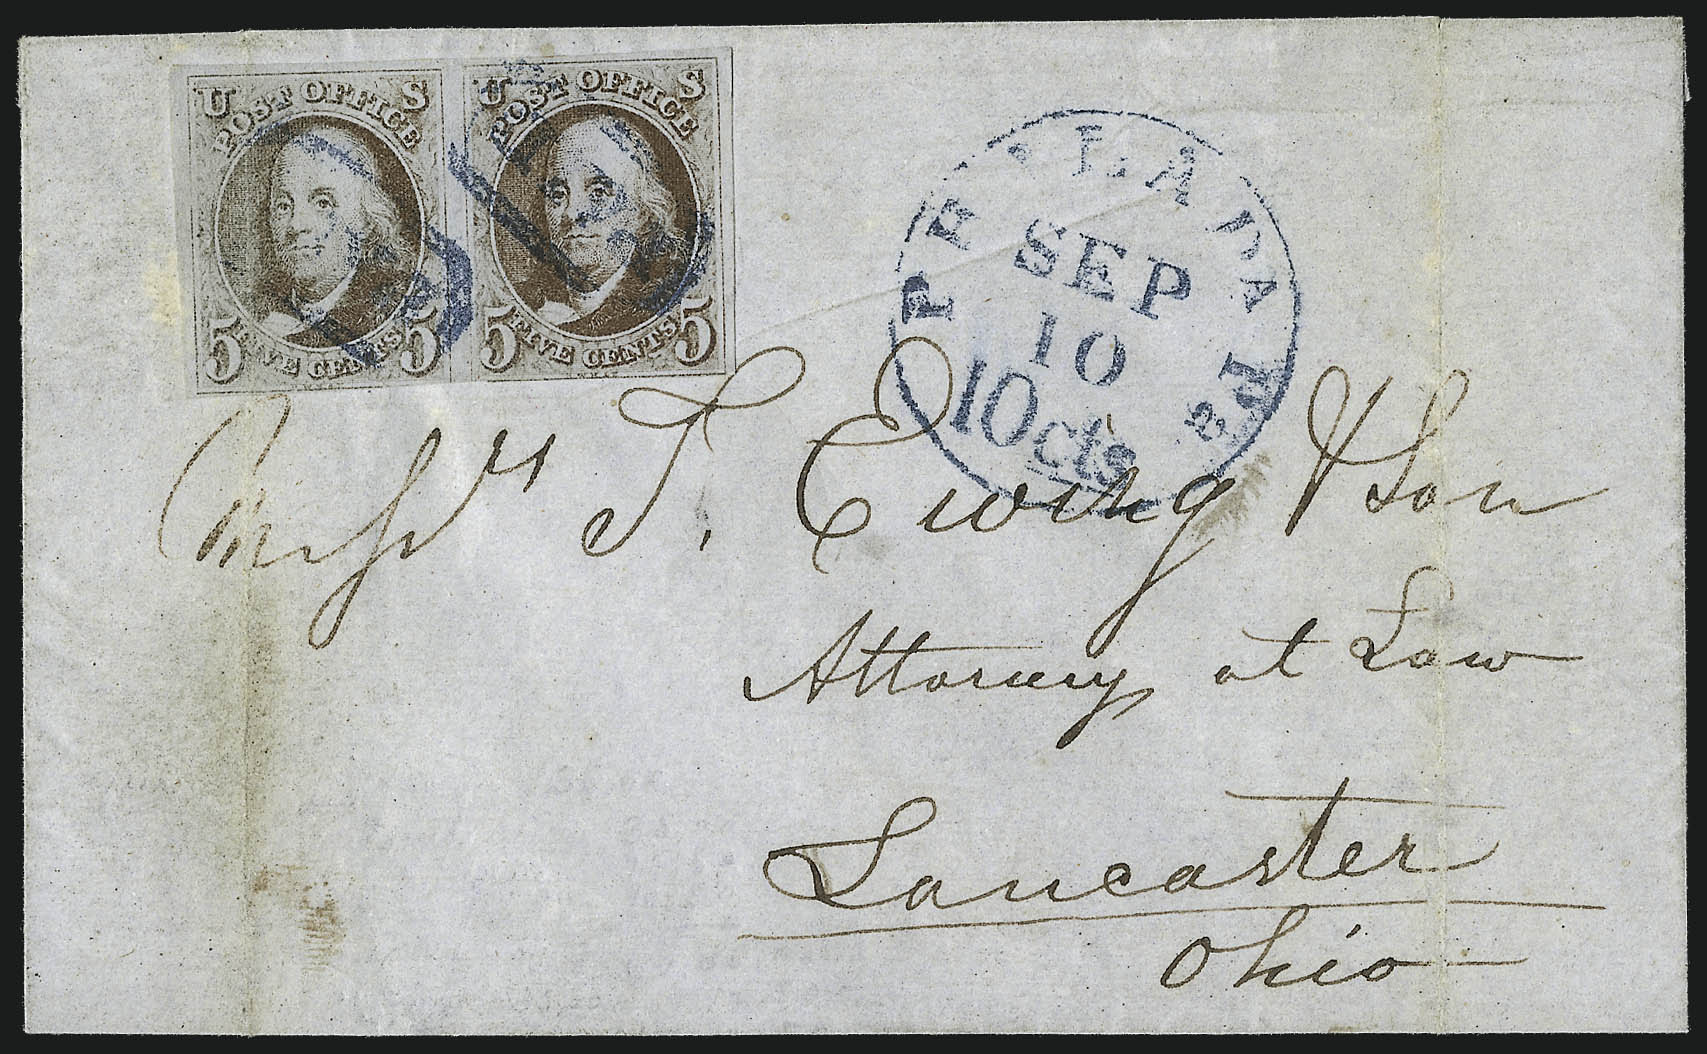 U S U S
POST OFFICE POST OFFICE
5 FIVE CENTS 5 5 FIVE CENTS 5
PAID PAID
PHILADA Pa
SEP
10
10cts
Messrs T. Ewing & Son
Attorney at Law
Lancaster
Ohio